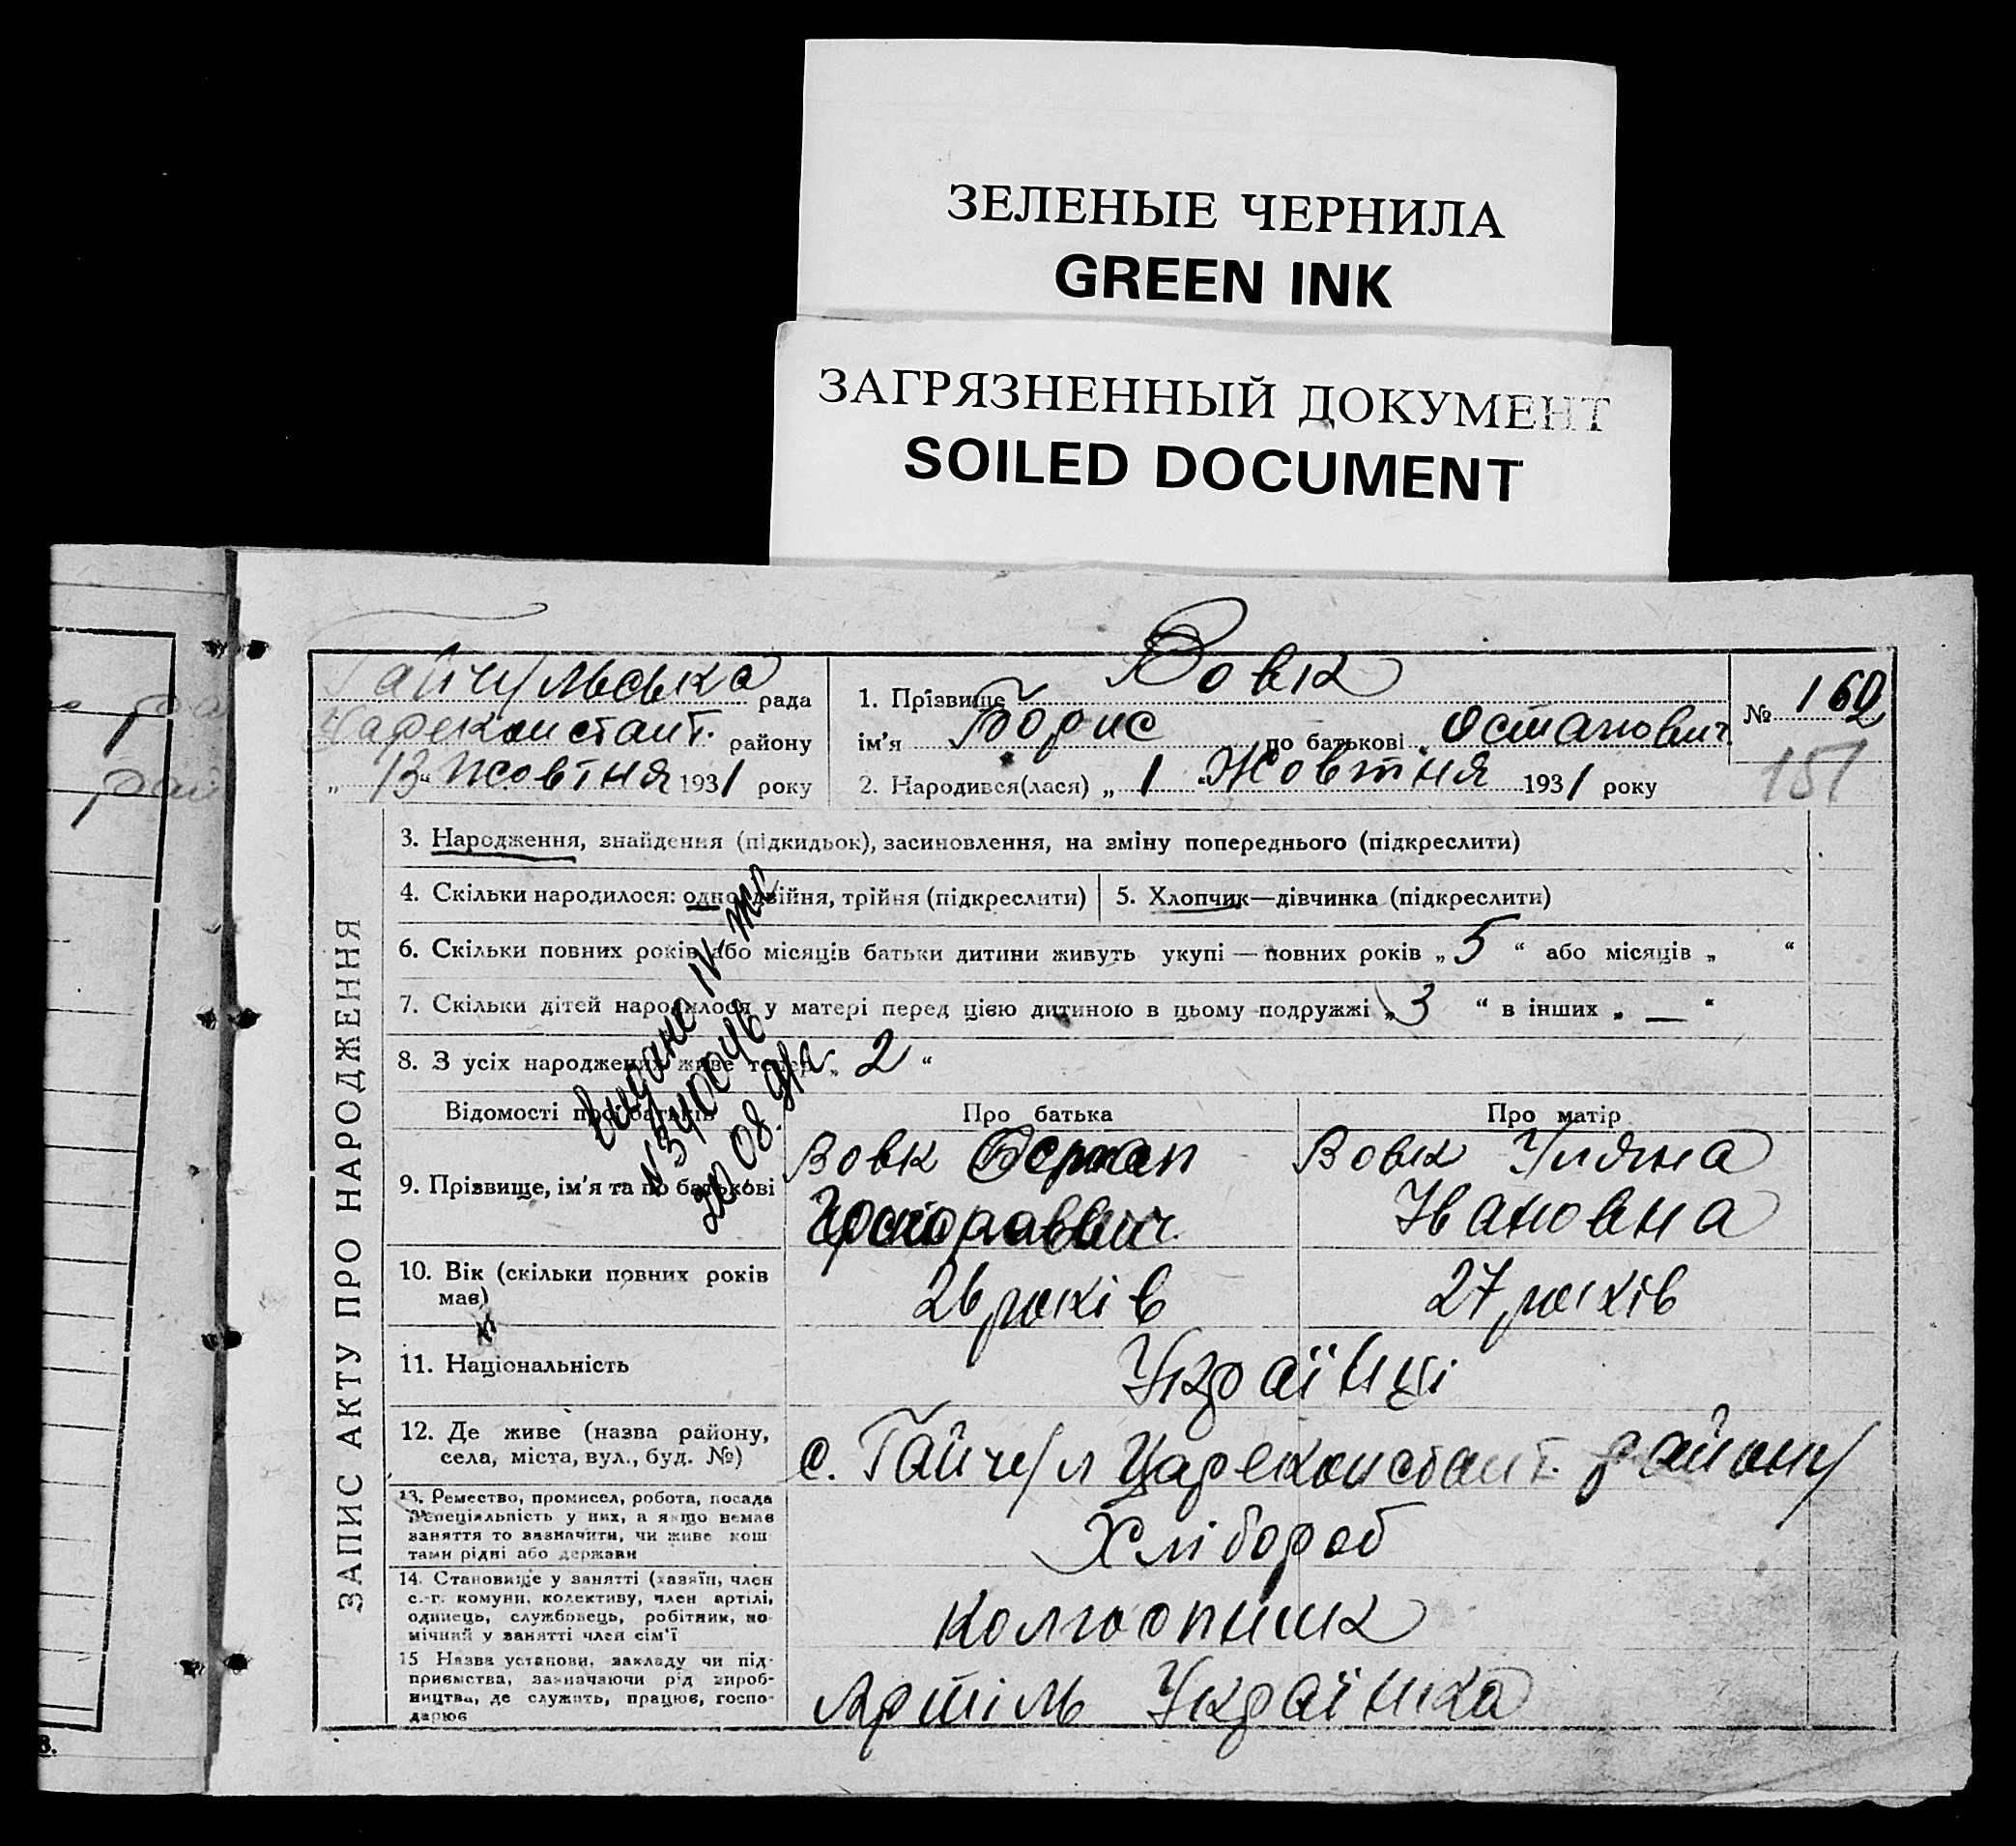 ЗЕЛЕНЫЕ ЧЕРНИЛА
GREEN INK
ЗАГРЯЗНЕННЫЙ ДОКУМЕНТ
SOILED DOCUMENT
Гайчульська рада
Цареконстант. району
„ 13 “ Жовтня 1931 року
1. Прізвище Вовк
ім'я Борис по батькові Остапович
2. Народився(лася) „ 1 “ Жовтня 1931 року
№ 160
151
ЗАПИС АКТУ ПРО НАРОДЖЕННЯ
3. Народження, знайдення (підкидьок), засиновлення, на зміну попереднього (підкреслити)
4. Скільки народилося: одно, двійня, трійня (підкреслити)
5. Хлопчик—дівчинка (підкреслити)
6. Скільки повних років або місяців батьки дитини живуть укупі — повних років „ 5 “ або місяців „ “
7. Скільки дітей народилося у матері перед цією дитиною в цьому подружжі „ 3 “ в інших „ — “
8. З усіх народжених живе тепер „ 2 “
видано
20.08.
Відомості про батьків
Про батька
Про матір
9. Прізвище, ім'я та по батькові
Вовк Остап
Вовк Уляна
Івановна
10. Вік (скільки повних років
має)
26 років
27 років
11. Національність
Українці
12. Де живе (назва району,
села, міста, вул., буд. №)
с. Гайчул Цареконстант. району
13. Ремество, промисел, робота, посада
спеціяльність у них, а якщо немає
заняття то зазначити, чи живе кош
тами рідні або держави
Хлібороб
14. Становище у занятті (хазяїн, член
с.-г. комуни, колективу, член артілі,
одинець, службовець, робітник, по-
мічний у занятті член сім'ї
колгоопник
15 Назва установи, закладу чи під-
приємства, зазначаючи рід вироб-
ництва, де служить, працює, госпо-
дарює
Артіль Українка